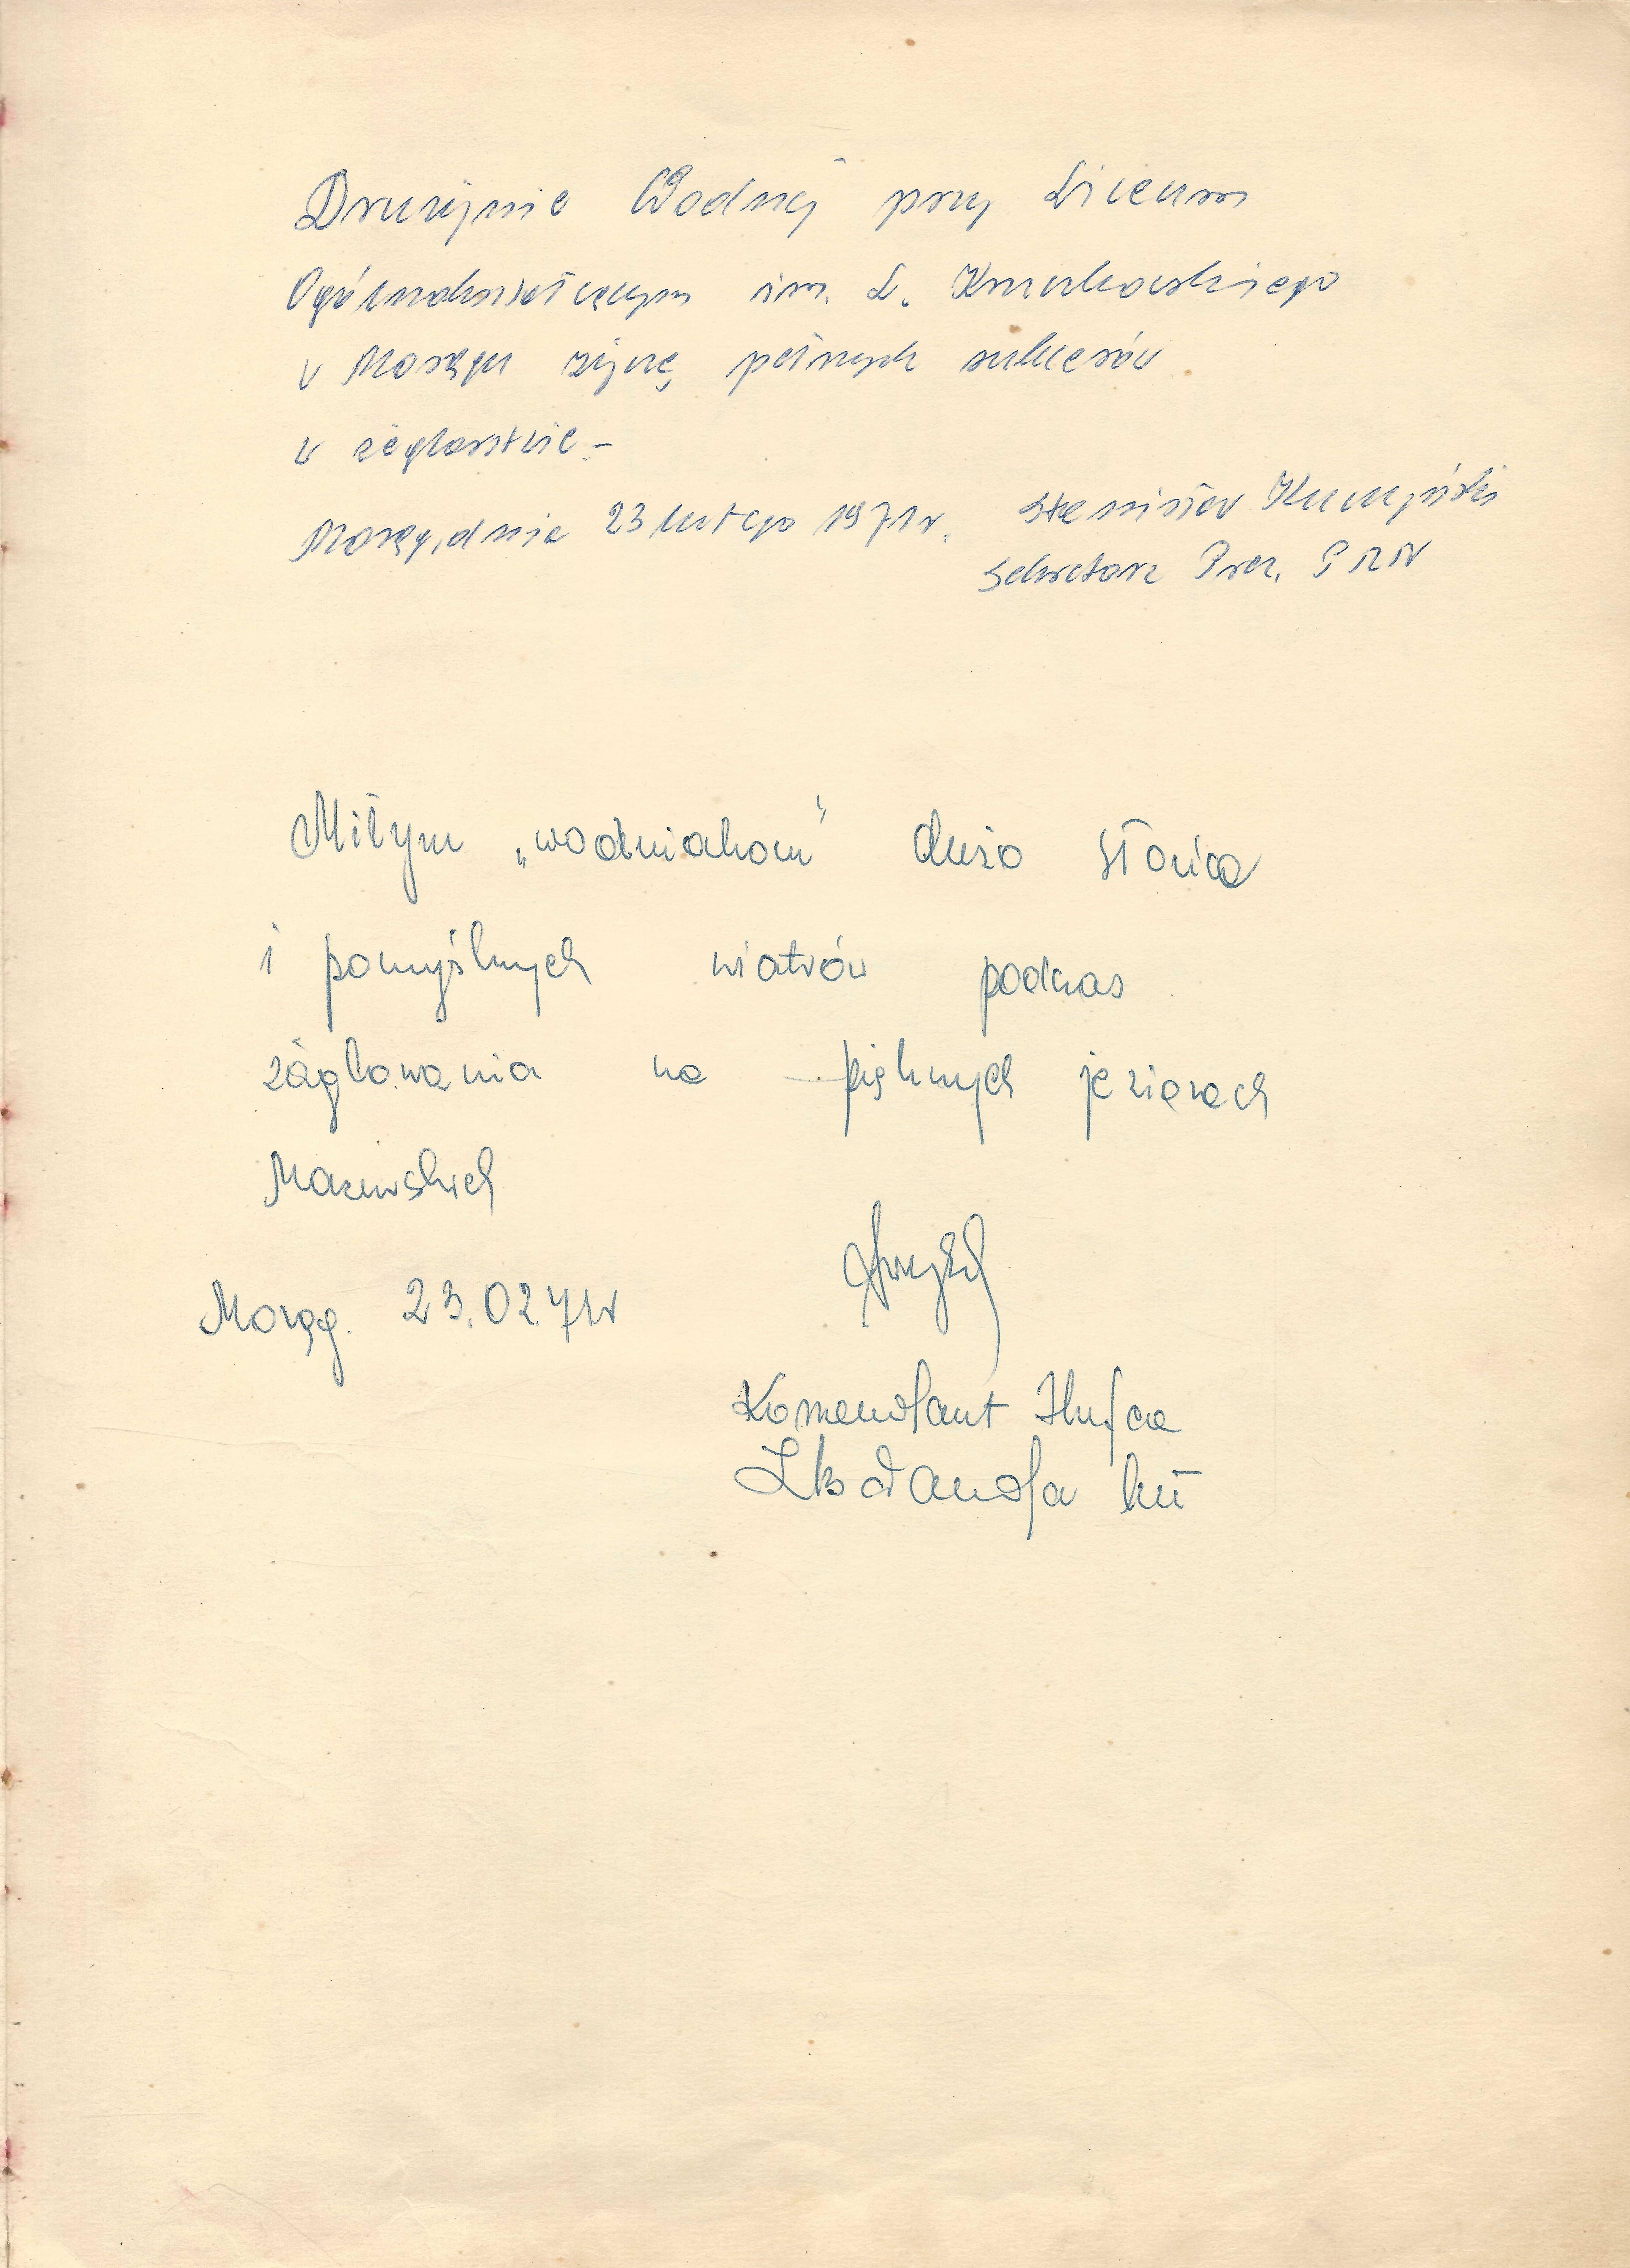 Drużynie Wodnej przy Liceum
Ogólnokształcącym im. L. Kruczkowskiego
w Morągu życzę pełnych sukcesów
w żeglarstwie -
Morąg, dnia 23 lutego 1971 r. Stanisław
Sekretarz Prez. PRN
Miłym „wodniakom" dużo słońca
i pomyślnych wiatrów podczas
żeglowania na pięknych jeziorach
Mazurskich
Morąg. 23.02.71r
Komendant Hufca
hm